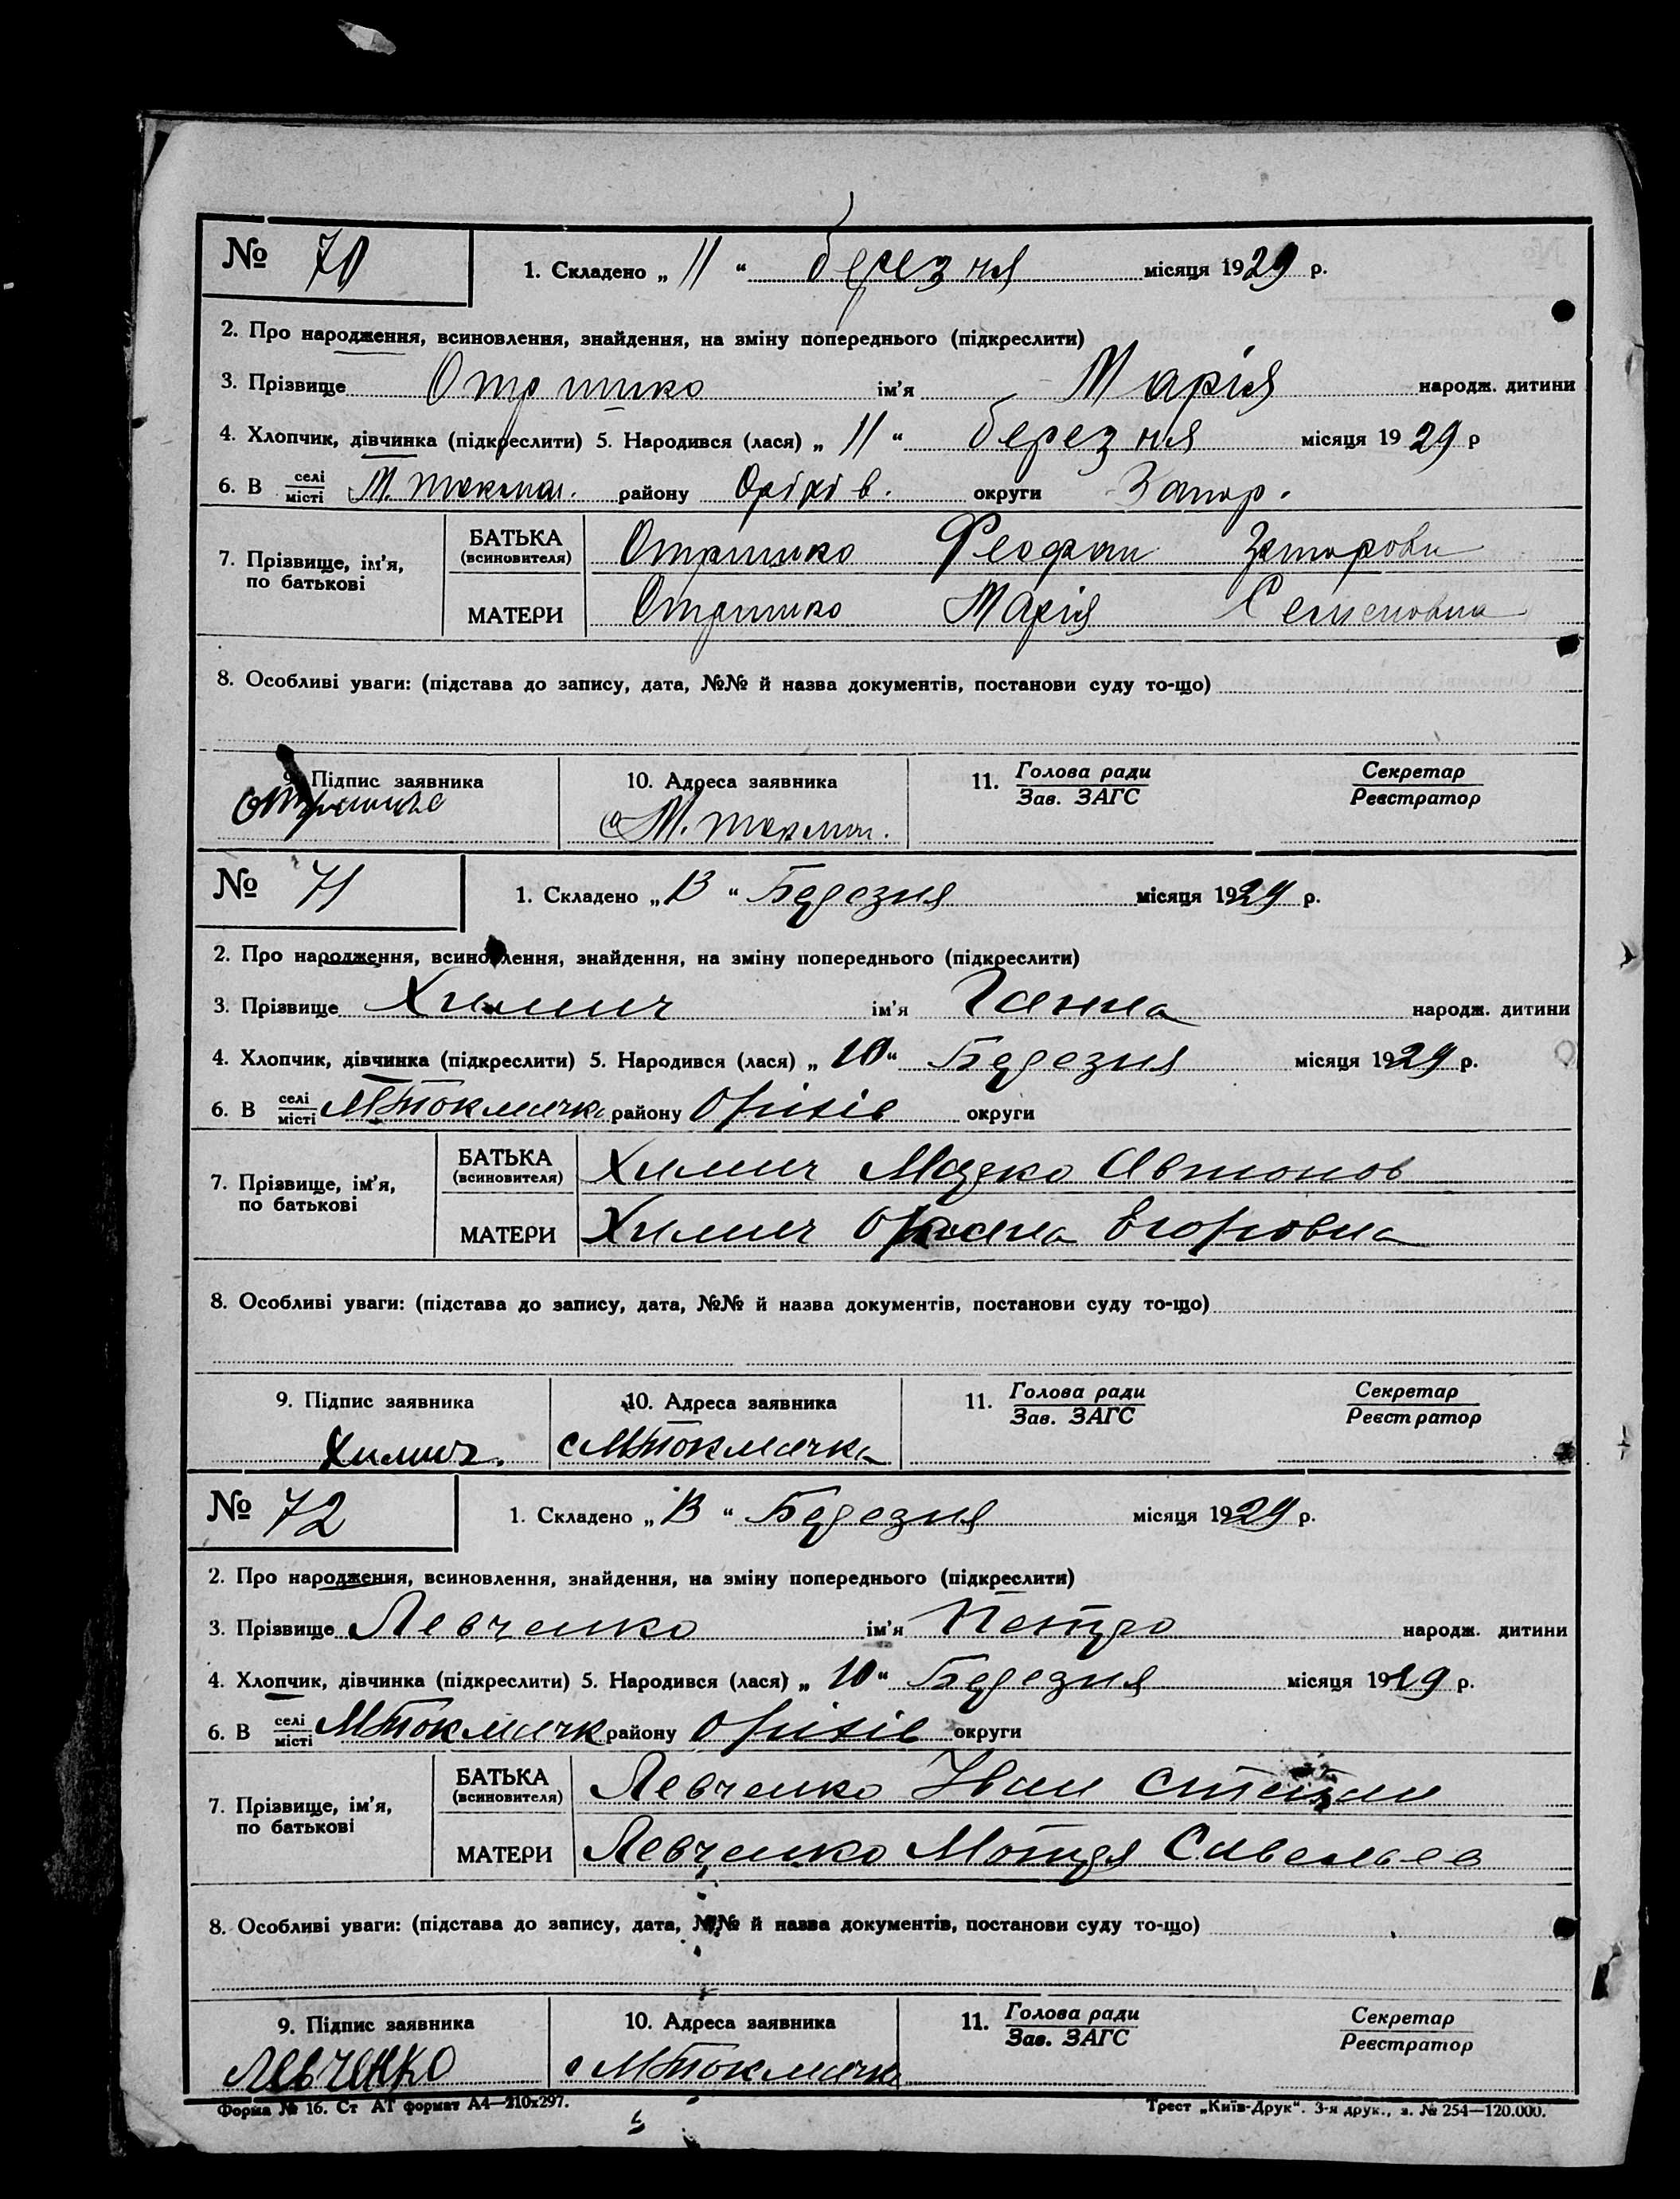 № 70 1. Складено „ 11 “ березня місяця 1929 р.
2. Про народження, всиновлення, знайдення, на зміну попереднього (підкреслити)
3. Прізвище ім'я Марія народж. дитини
4. Хлопчик, дівчинка (підкреслити) 5. Народився (лася) „ 11 “ березня місяця 1929 р
6. В селі місті М. Токмач. району Оріхів. округи Запор.
7. Прізвище, ім'я, по батькові
БАТЬКА (всиновителя) Феофан
МАТЕРИ Марія Семеновна
8. Особливі уваги: (підстава до запису, дата, №№ й назва документів, постанови суду то-що)
9. Підпис заявника 10. Адреса заявника 11. Голова ради Зав. ЗАГС Секретар Реєстратор
М. Токмач.
№ 71 1. Складено „ 13 “ Березня місяця 1929 р.
2. Про народження, всиновлення, знайдення, на зміну попереднього (підкреслити)
3. Прізвище Химич ім'я Ганна народж. дитини
4. Хлопчик, дівчинка (підкреслити) 5. Народився (лася) „ 10 “ Березня місяця 1929 р.
6. В селі місті МТокмачка району Оріхів округи
7. Прізвище, ім'я, по батькові
БАТЬКА (всиновителя) Химич Марко Автонов
МАТЕРИ Химич Егоровна
8. Особливі уваги: (підстава до запису, дата, №№ й назва документів, постанови суду то-що)
9. Підпис заявника 10. Адреса заявника 11. Голова ради Зав. ЗАГС Секретар Реєстратор
Химич. с МТокмачка
№ 72 1. Складено „ 13 “ Березня місяця 1929 р.
2. Про народження, всиновлення, знайдення, на зміну попереднього (підкреслити)
3. Прізвище Левченко ім'я Петро народж. дитини
4. Хлопчик, дівчинка (підкреслити) 5. Народився (лася) „ 10 “ Березня місяця 1929 р.
6. В селі місті МТокмачк району Оріхів округи
7. Прізвище, ім'я, по батькові
БАТЬКА (всиновителя) Левченко Иван Степан
МАТЕРИ Левченко Мотря Савельев
8. Особливі уваги: (підстава до запису, дата, №№ й назва документів, постанови суду то-що)
9. Підпис заявника 10. Адреса заявника 11. Голова ради Зав. ЗАГС Секретар Реєстратор
Левченко с МТокмачка
Форма № 16. Ст АТ формат А4—210х297. Трест „Київ-Друк“. 3-я друк., з. № 254—120.000.